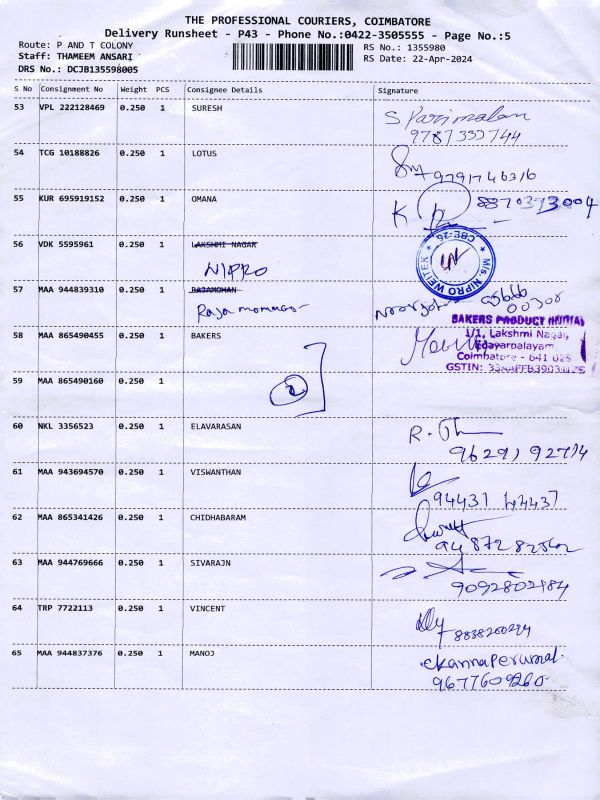 THE PROFESSIONAL COURIERS, COIMBATORE
Delivery Runsheet - P43 - Phone No.:0422-3505555 - Page No.:5
Route: P AND T COLONY
RS No.: 1355980
Staff: THAMEEM ANSARI
RS Date: 22-Apr-2024
DRS No.: DCJB135598005
S No Consignment No Weight PCS Consignee Details Signature
53 VPL 222128469 0.250 1 SURESH
S. Parimalam
9787333744
54 TCG 10188826 0.250 1 LOTUS
9791746316
55 KUR 695919152 0.250 1 OMANA
8870373004
56 VDK 5595961 0.250 1 LAKSHMI NAGAR
NIPRO
M/s. NIPRO WEITEK
CBE-25
57 MAA 944839310 0.250 1 RAJAMOHAN
58 MAA 865490455 0.250 1 BAKERS
BAKERS PRODUCT (INDIA)
1/1, Lakshmi Nagar,
Edayarpalayam,
Coimbatore - 641 025
GSTIN:
59 MAA 865490160 0.250 1
2
60 NKL 3356523 0.250 1 ELAVARASAN
61 MAA 943694570 0.250 1 VISWANTHAN
94431 44437
62 MAA 865341426 0.250 1 CHIDHABARAM
63 MAA 944769666 0.250 1 SIVARAJN
9092802184
64 TRP 7722113 0.250 1 VINCENT
65 MAA 944837376 0.250 1 MANOJ
ekannaperumal.
9677609260